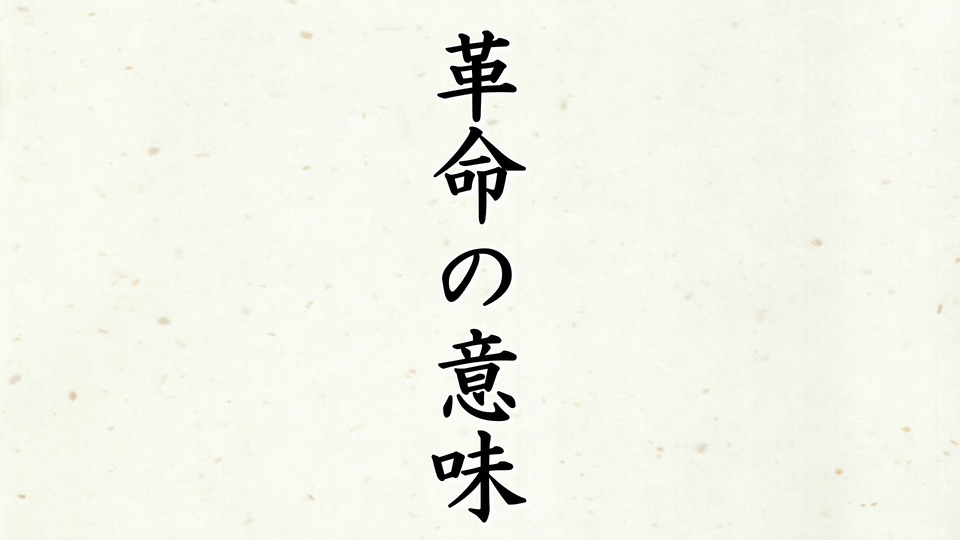 革命の意味